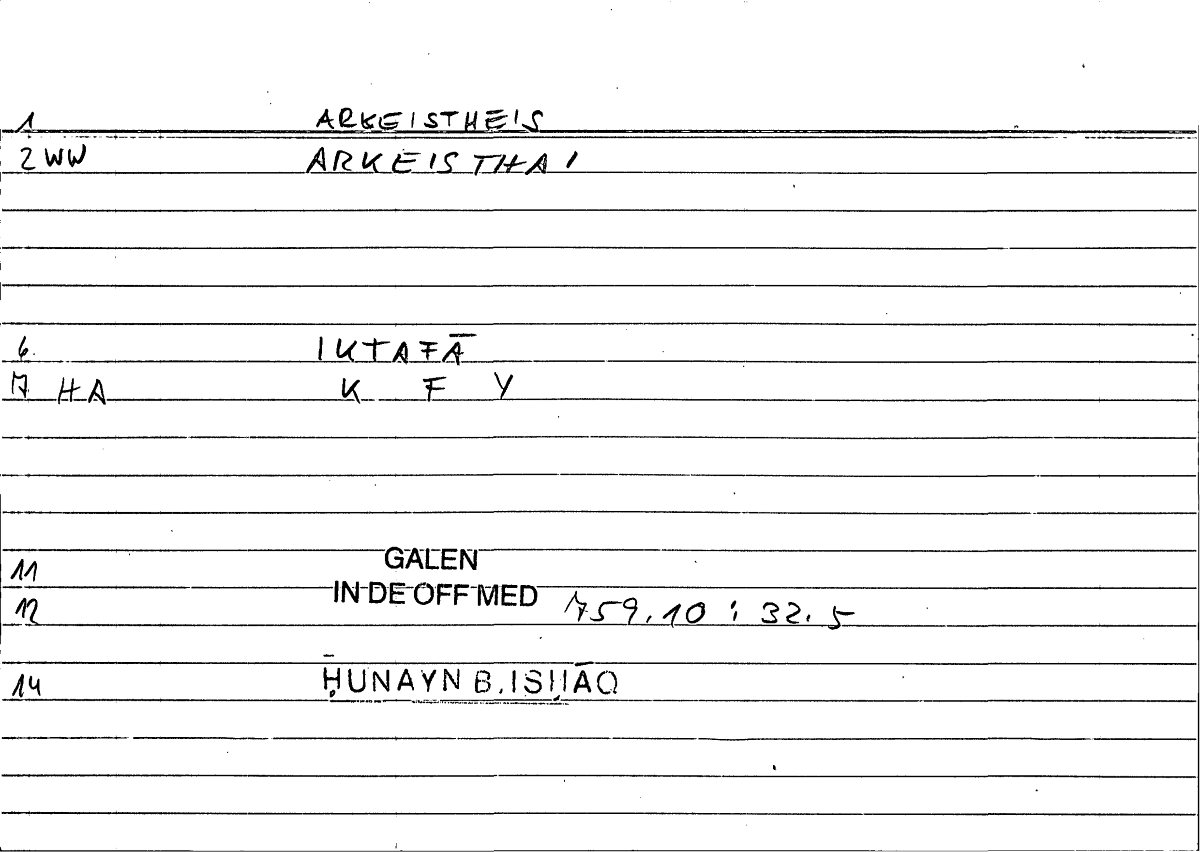 1 ARKEISTHEIS
2 WW ARKEISTHAI
6. IKTAFĀ
7 HA K F Y
11 GALEN
12 IN DE OFF MED 759.10 : 32.5
14 ḤUNAYN B. ISḤĀQ